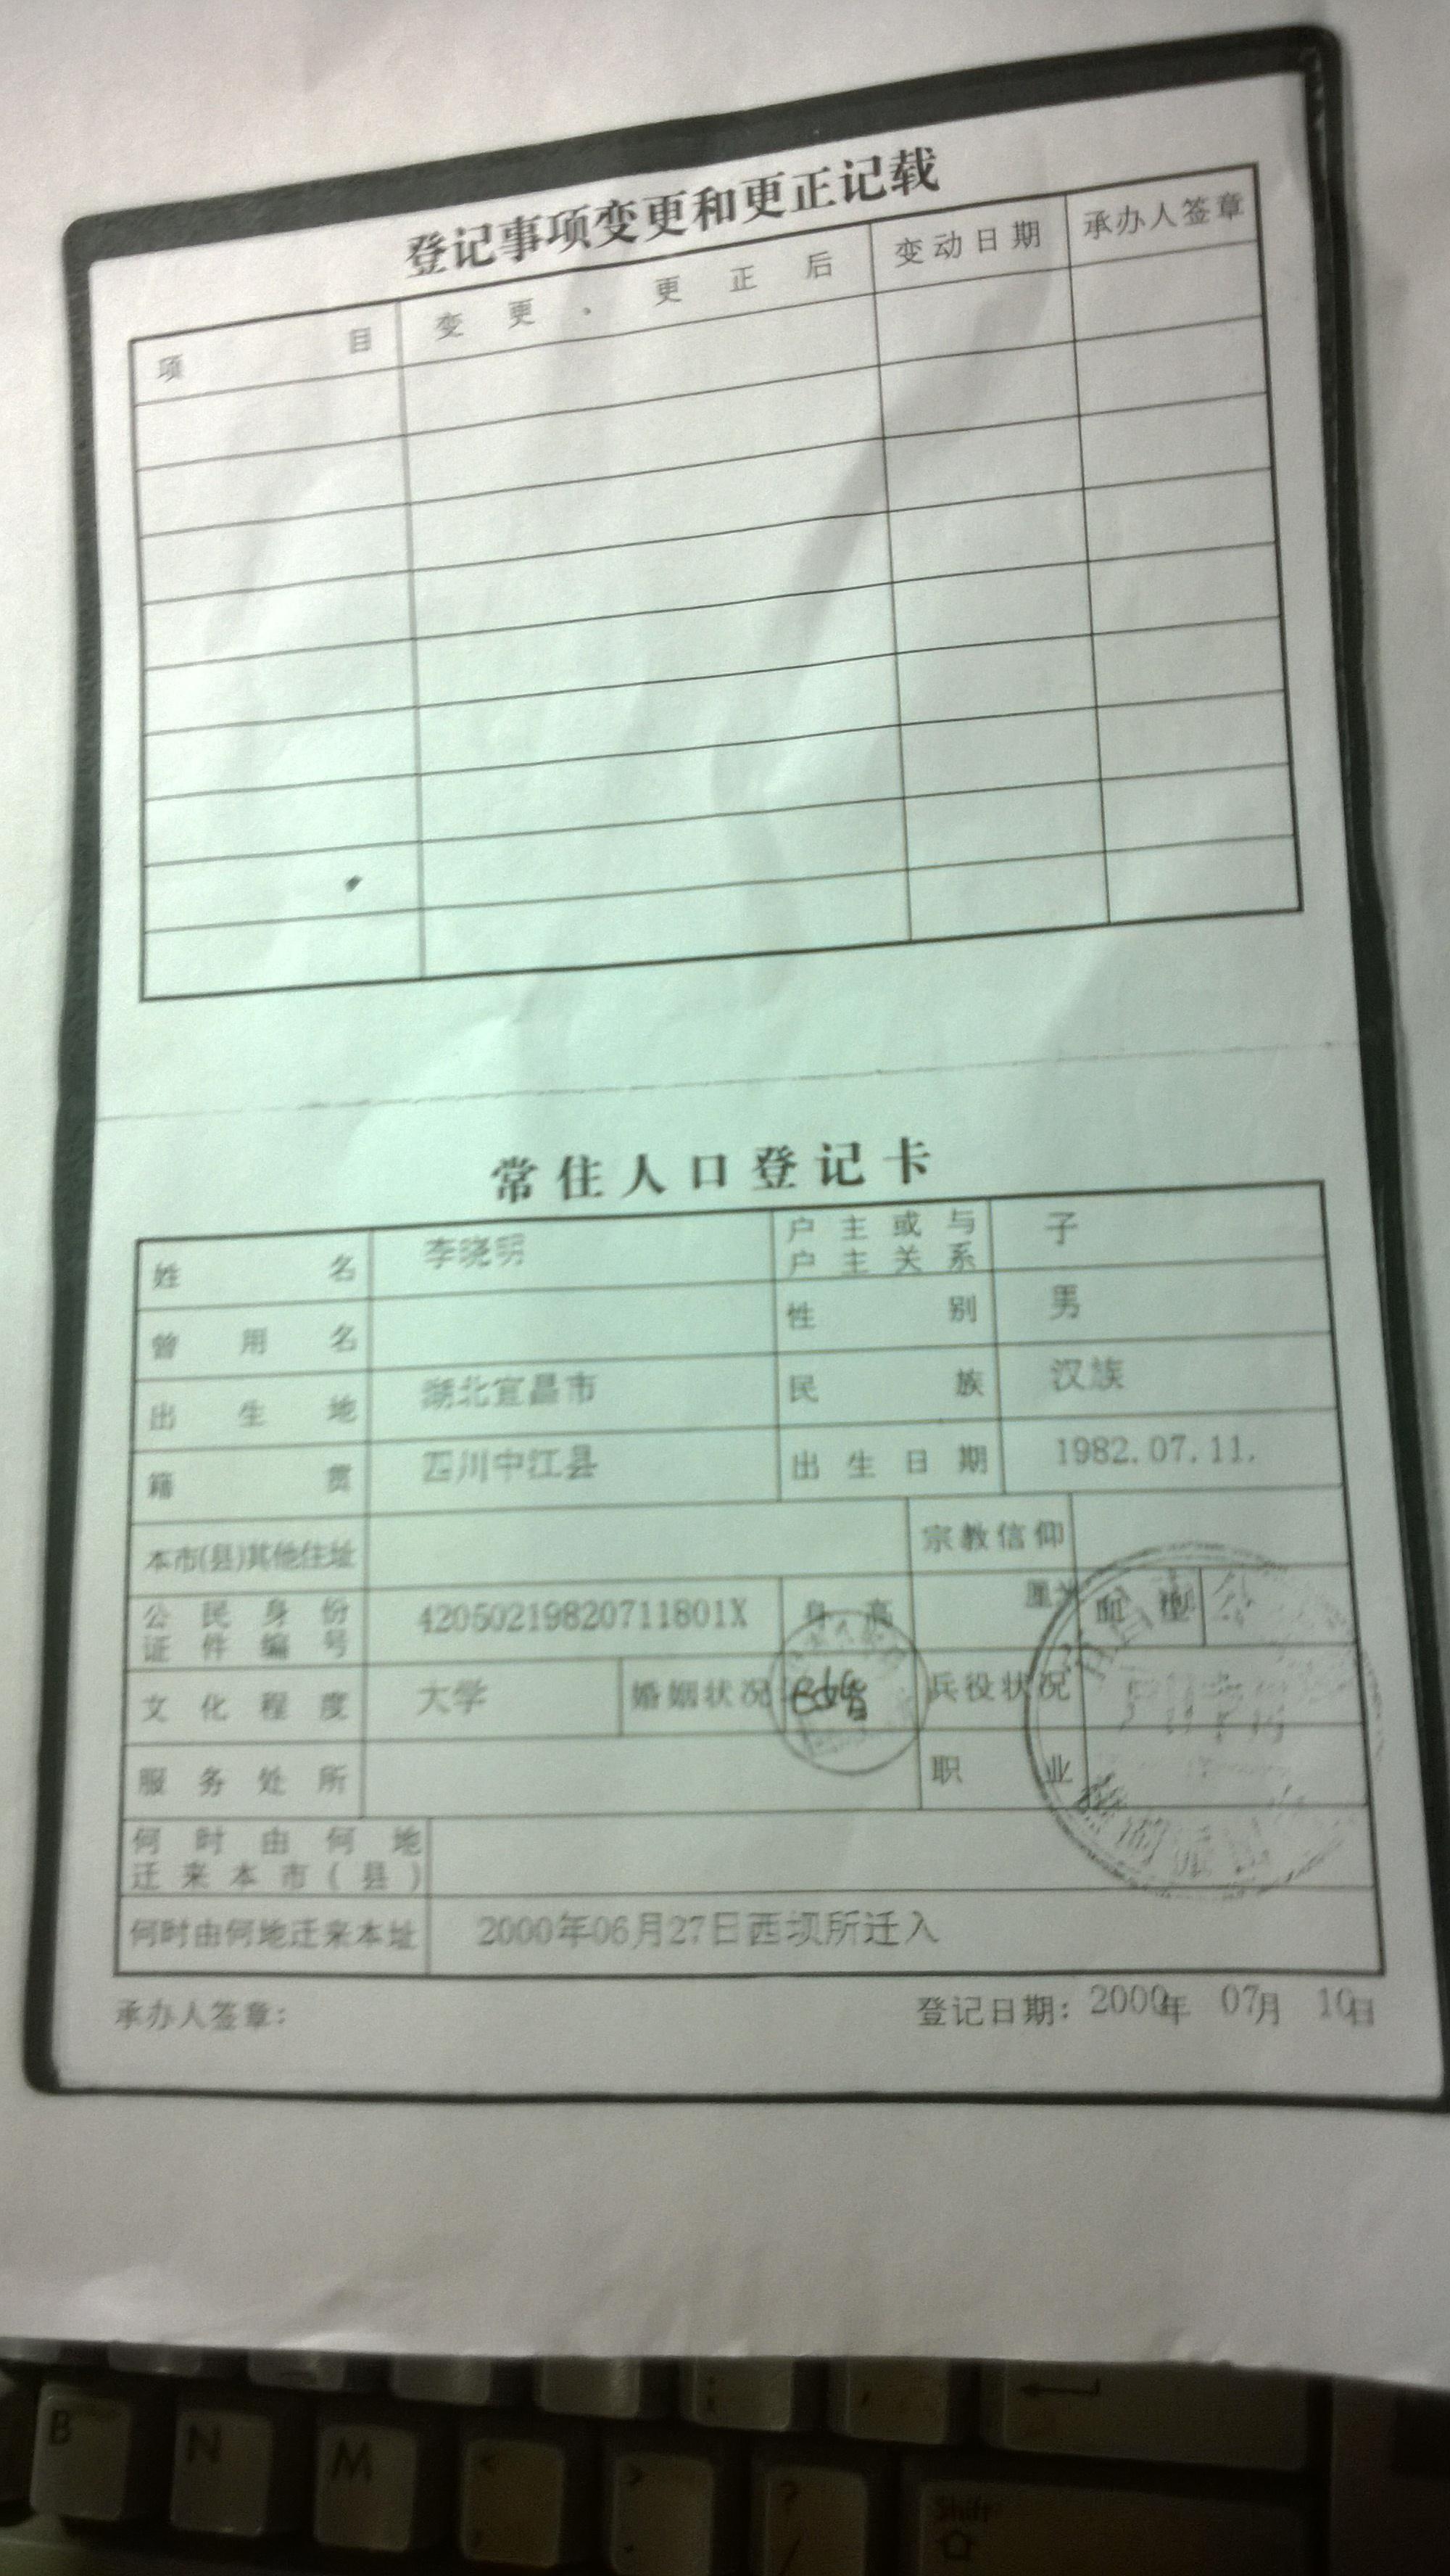 登记事项变更和更正记载
项目 变更、更正后 变动日期 承办人签章
常住人口登记卡
姓名 李晓明 户主或与户主关系 子
曾用名 性别 男
出生地 湖北宜昌市 民族 汉族
籍贯 四川中江县 出生日期 1982.07.11.
本市(县)其他住址 宗教信仰
公民身份证件编号 42050219820711801X 身高 厘米 血型
文化程度 大学 婚姻状况 已婚 兵役状况
服务处所 职业
何时由何地迁来本市(县)
何时由何地迁来本址 2000年06月27日西坝所迁入
承办人签章: 登记日期: 2000年 07月 10日
B N M < > ? /
Shift